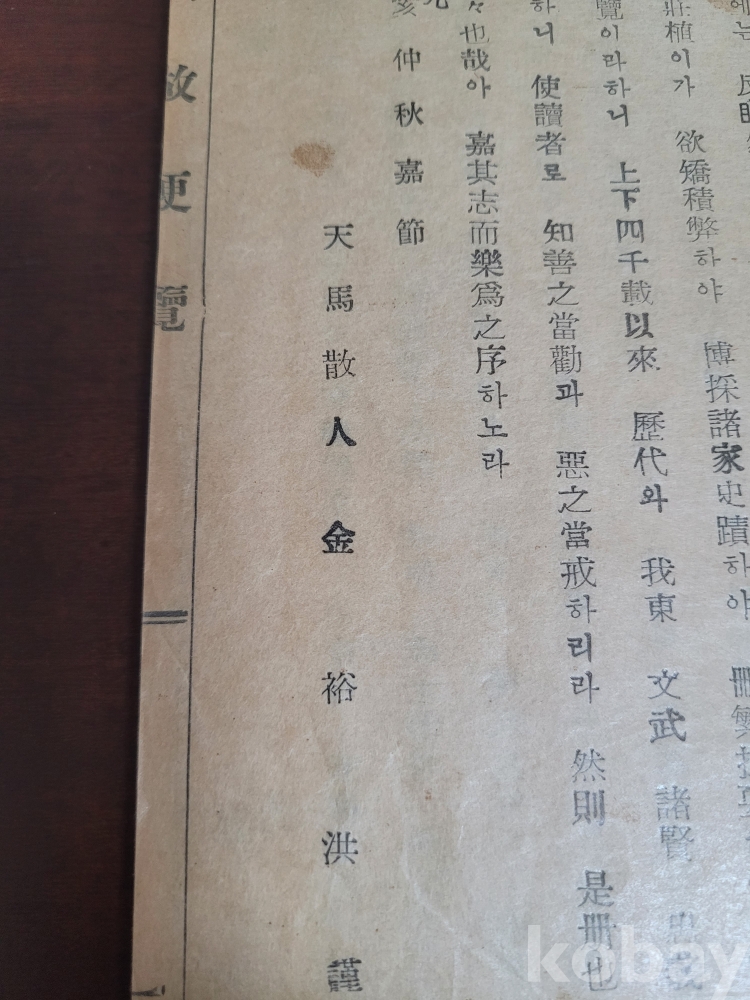 에는
莊植이가 欲矯積弊하야 博採諸家史蹟하야
覽이라하니 上下四千載以來 歷代와 我東 文武 諸賢
하니 使讀者로 知善之當勸과 惡之當戒하리라 然則 是冊也
也哉아 嘉其志而樂爲之序하노라
亥仲秋嘉節
天馬散人金裕洪謹
攷便覽
kobay